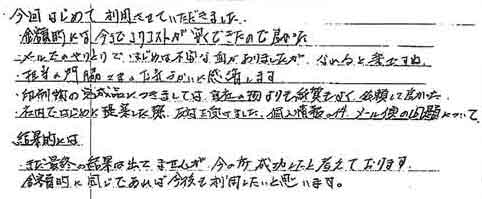 今回はじめて利用させていただきました。
・金額的には今までよりコストが安くできたので良かった
・メールでのやりとりで、はじめは不安な面がありましたが、なれると楽ですね。
・担当の門脇さまの丁寧な に感謝します
・印刷物の完成品につきましては、 の物よりも紙質もよく、依頼して良かった。
・社内ではじめに提案した際、 個人情報の件、メール便の問題について
結果的には
・まだ最終の結果は出てませんが、今の所成功したと考えております。
金額的に同じであれば今後も利用したいと思います。